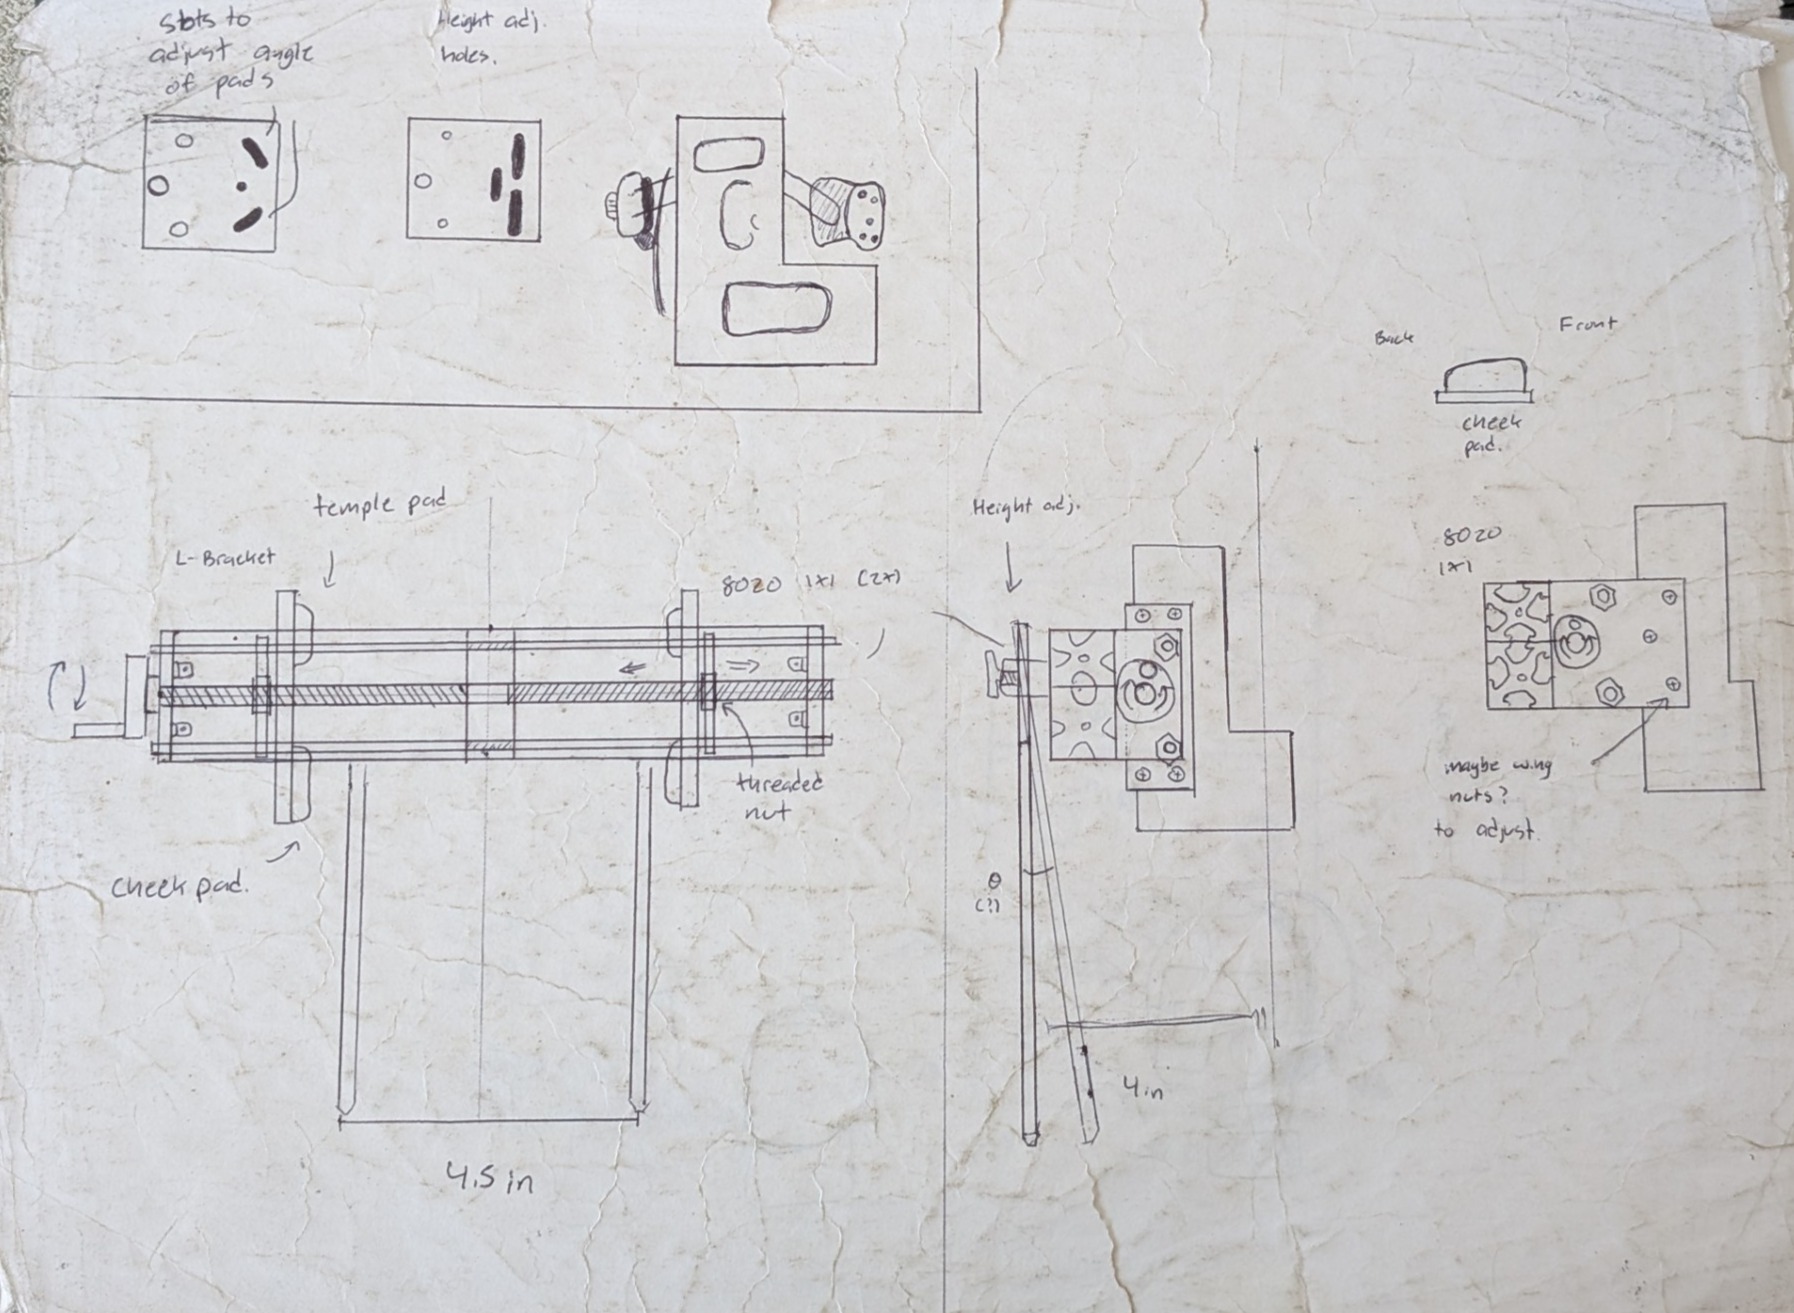 Slots to
adjust angle
of pads
Height adj.
holes.
Back
Front
cheek
pad.
temple pad
L-Bracket
8020 1x1 (2x)
threaded
nut
cheek pad.
4.5 in
Height adj.
θ
(?)
4 in
8020
1x1
maybe wing
nuts?
to adjust.